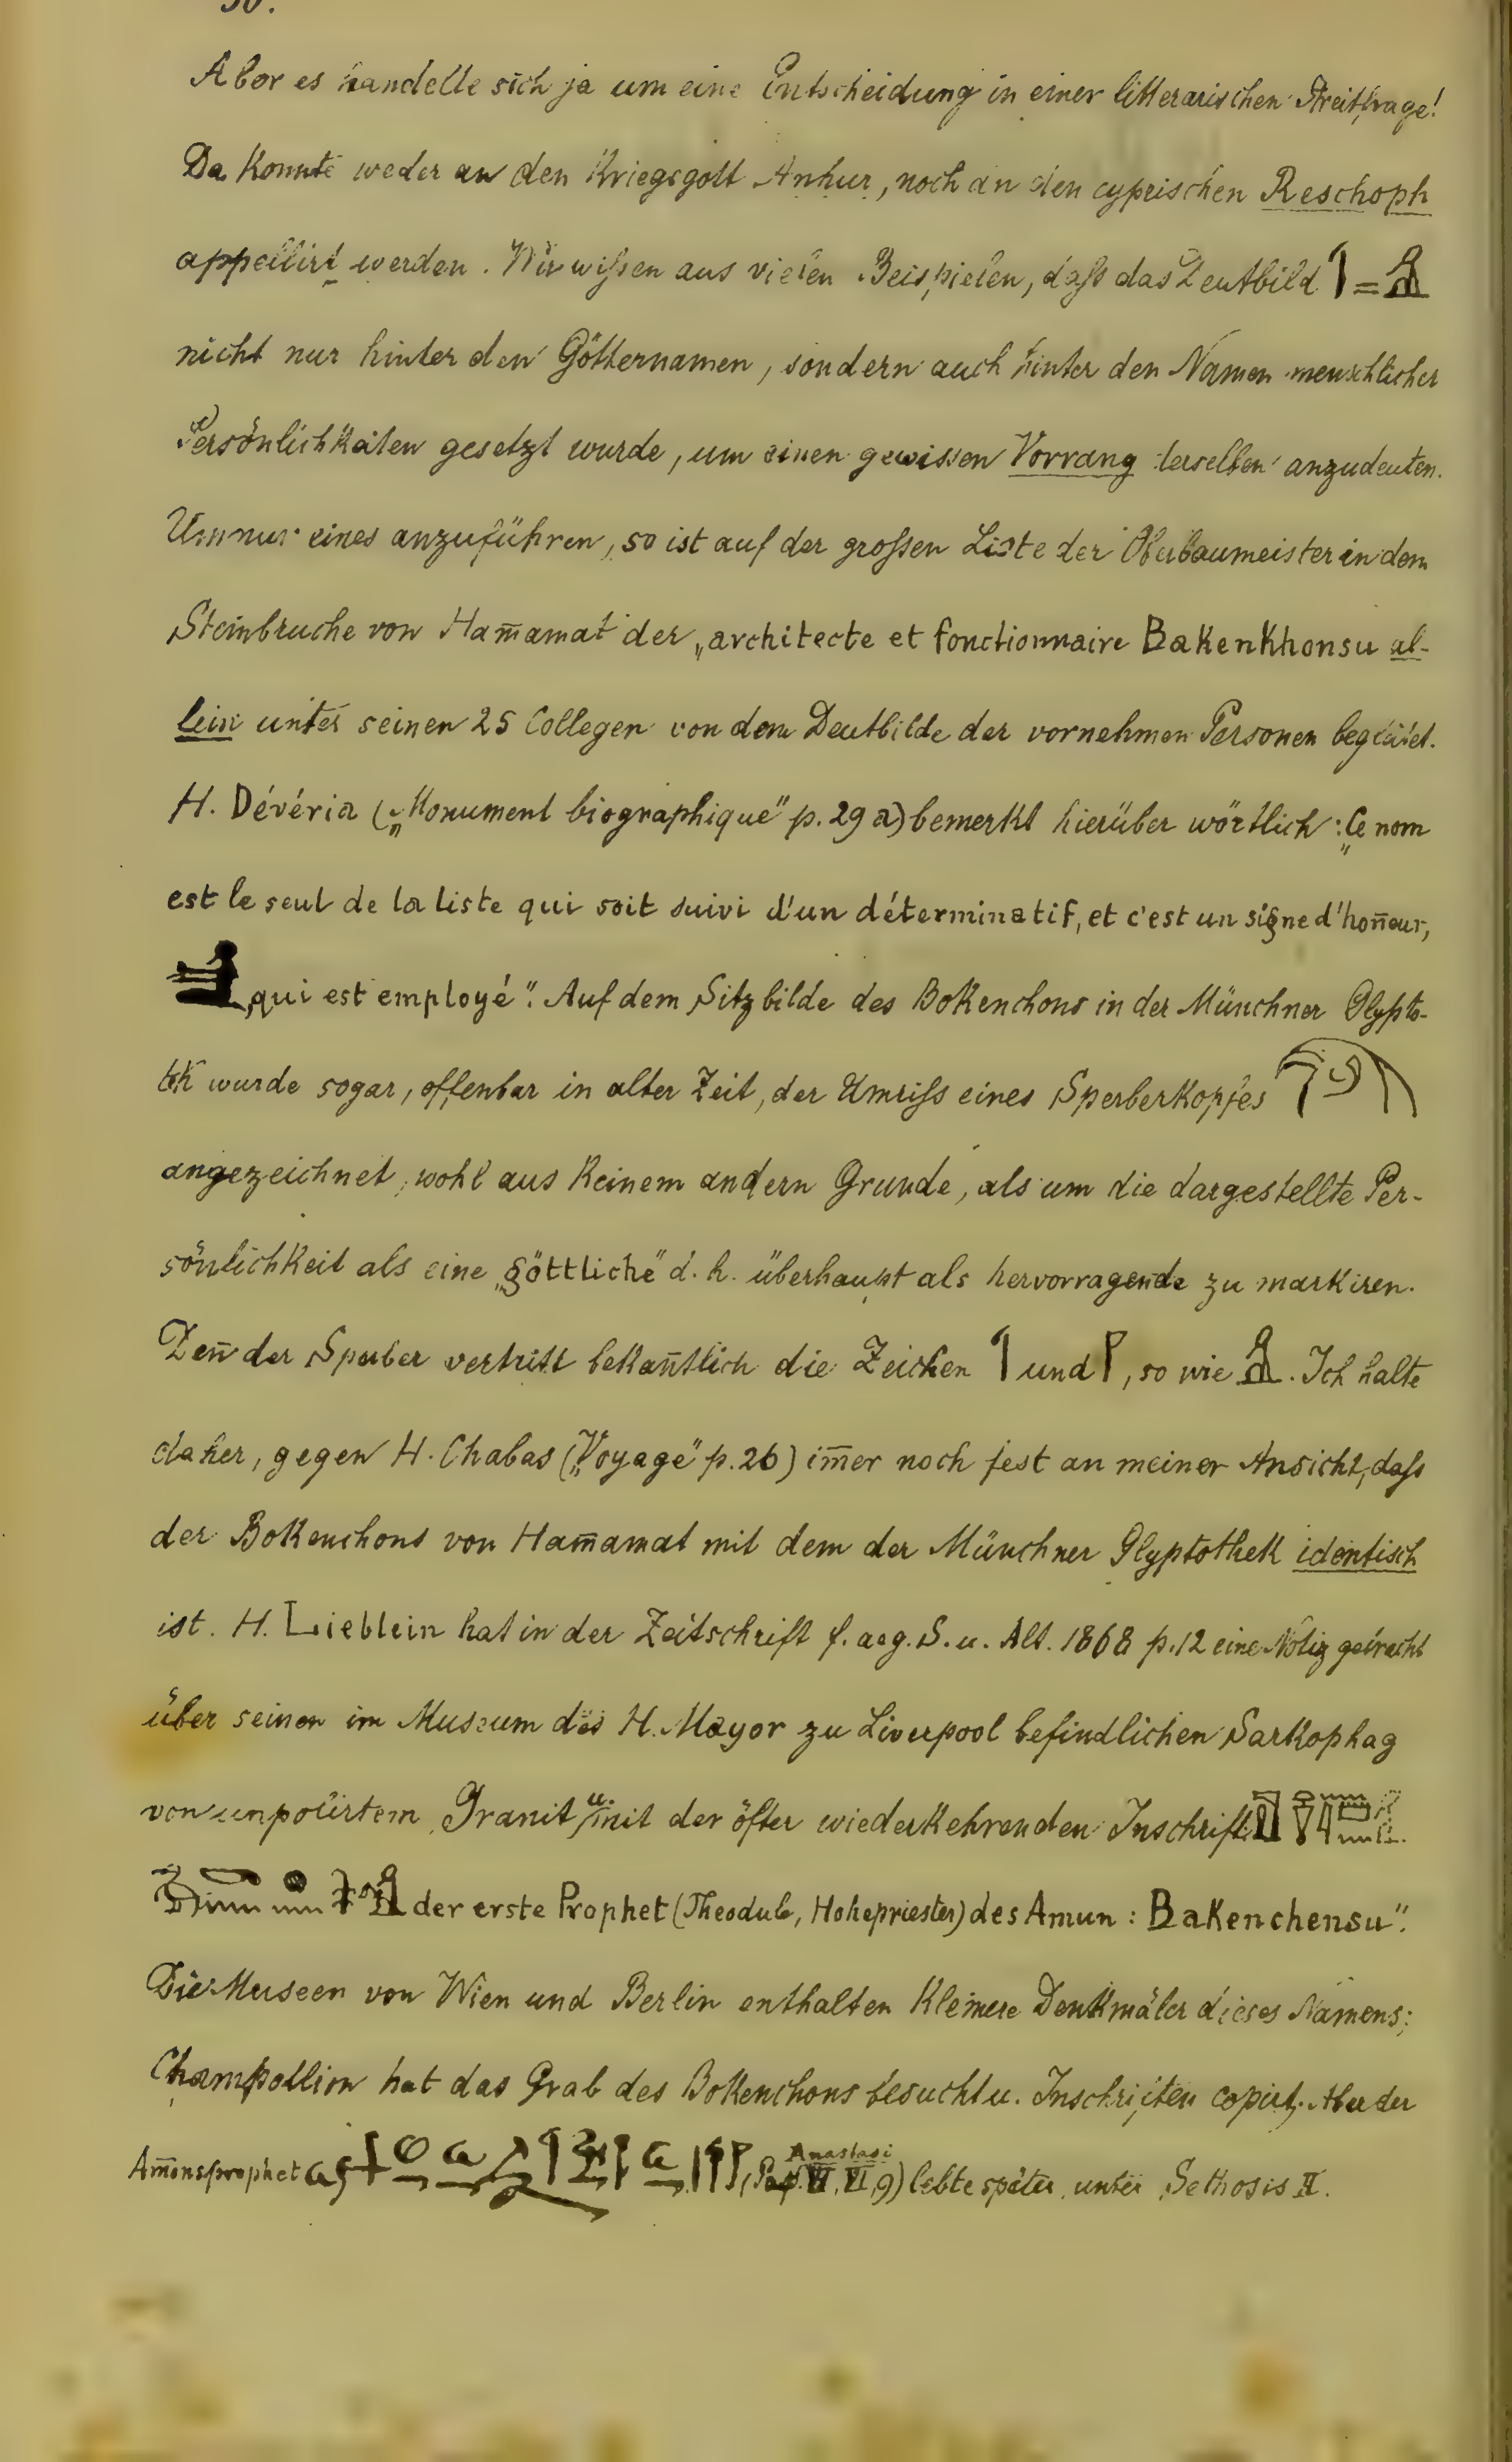 Aber es handelte sich ja um eine Entscheidung in einer litterarischen Streitfrage!
Da konnte weder an den Kriegsgott Anhur, noch an den cyprischen Reschoph
appellirt werden. Wir wißen aus vielen Beispielen, daß das Deutbild =
nicht nur hinter den Götternamen, sondern auch hinter den Namen menschlicher
Persönlichkeiten gesetzt wurde, um einen gewissen Vorrang derselben anzudeuten.
Um nur eines anzuführen, so ist auf der großen Liste der Oberbaumeister in dem
Steinbruche von Ham̄amat der „architecte et fonctionnaire Bakenkhonsu al-
lein unter seinen 25 Collegen von dem Deutbilde der vornehmen Personen begleitet.
H. Dévéria („Monument biographique" p. 29 a) bemerkt hierüber wörtlich: „Ce nom
est le seul de la liste qui soit suivi d'un déterminatif, et c'est un signe d'hon̄eur,
, qui est employé". Auf dem Sitzbilde des Bokenchons in der Münchner Glypto-
tek wurde sogar, offenbar in alter Zeit, der Umriß eines Sperberkopfes
angezeichnet, wohl aus keinem andern Grunde, als um die dargestellte Per-
sönlichkeit als eine „göttliche" d. h. überhaupt als hervorragende zu markiren.
Den̄ der Sperber vertritt bekan̄tlich die Zeichen und , so wie . Ich halte
daher, gegen H. Chabas („Voyage" p. 26) im̄er noch fest an meiner Ansicht, daß
der Bokenchons von Ham̄amat mit dem der Münchner Glyptothek identisch
ist. H. Lieblein hat in der Zeitschrift f. aeg. S. u. Alt. 1868 p. 12 eine Notiz gebracht
über seinen im Museum des H. Mayor zu Liverpool befindlichen Sarkophag
von unpolirtem Granit u. mit der öfter wiederkehrenden Inschrift
der erste Prophet (Theodule, Hohepriester) des Amun: Bakenchensu".
Die Museen von Wien und Berlin enthalten kleinere Denkmäler dieses Namens;
Champollion hat das Grab des Bokenchons besucht u. Inschriften copirt. Aber der
Am̄onsprophet (Pap. Anastasi VI, VI, 9) lebte später, unter Sethosis II.